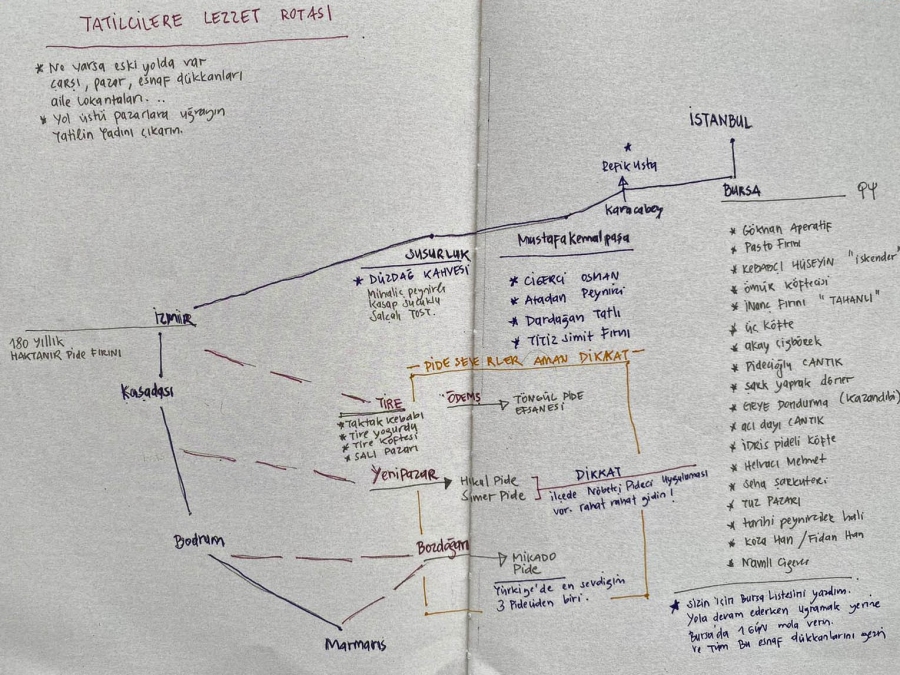 TATİLCİLERE LEZZET ROTASI
* Ne varsa eski yolda var
çarşı, pazar, esnaf dükkanları
aile lokantaları...
* Yol üstü pazarlara uğrayın
Tatilin tadını çıkarın.
İSTANBUL
*
Refik Usta
Karacabey
BURSA
* Gökhan Aperatif
* Pasto Fırını
* KEBABCI HÜSEYİN "iskender"
* ömür köftecisi
* İnanç Fırını "TAHANLI"
* üç köfte
* akay çiğbörek
* Pidecioğlu CANTIK
* şark yaprak döner
* Dondurma (Kazandibi)
* acı dayı CANTIK
* İDRİS pideli köfte
* Helvacı Mehmet
* Seha şarküteri
* TUZ PAZARI
* tarihi peynirciler hali
* Koza Han / Fidan Han
* Namlı Ciğerci
* Sizin için Bursa Listesini yazdım.
Yola devam ederken uğramak yerine
Bursa'da 1 GÜN mola verin.
ve Tüm Bu esnaf dükkanlarını gezin
Mustafakemalpaşa
* CİĞERCİ OSMAN
* Atadan Peynirci
* Dardağan Tatlı
* TİTİZ Simit Fırını
SUSURLUK
* DÜZDAĞ KAHVESİ
Mihaliç peynirli
Kasap Sucuklu
Salçalı TOST.
İZMİR
180 yıllık
HAKTANIR Pide FIRINI
Kuşadası
Bodrum
Marmaris
PİDE SEVERLER AMAN DİKKAT
TİRE
* Taktak kebabı
* Tire yoğurdu
* Tire köftesi
* SALI PAZARI
ÖDEMŞ
TÖNGÜL PİDE
EFSANESİ
Yenipazar
Hilal Pide
Sümer Pide
DİKKAT
ilçede Nöbetçi Pideci Uygulaması
var. rahat rahat gidin!
Bozdoğan
MİKADO
Pide
Türkiye'de en sevdiğim
3 Pideciden biri.